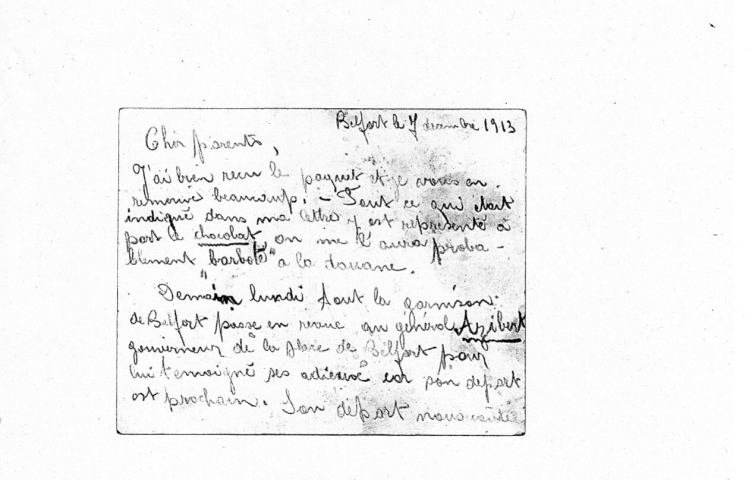 Belfort le 7 decembre 1913
Cher parents,
J'ai bien recu le paquet et je vous en
remercie beaucoup. - Tout ce qui était
indiqué dans ma lettre y est représenté à
part le chocolat on me l'aura proba -
blement "barboté" a la douane.
Demain lundi tout la garnison
de Belfort passe en revue au général Azibert
gouverneur de la place de Belfort pour
lui témoigné ses adieux car son départ
est prochain. Son départ nous coûte